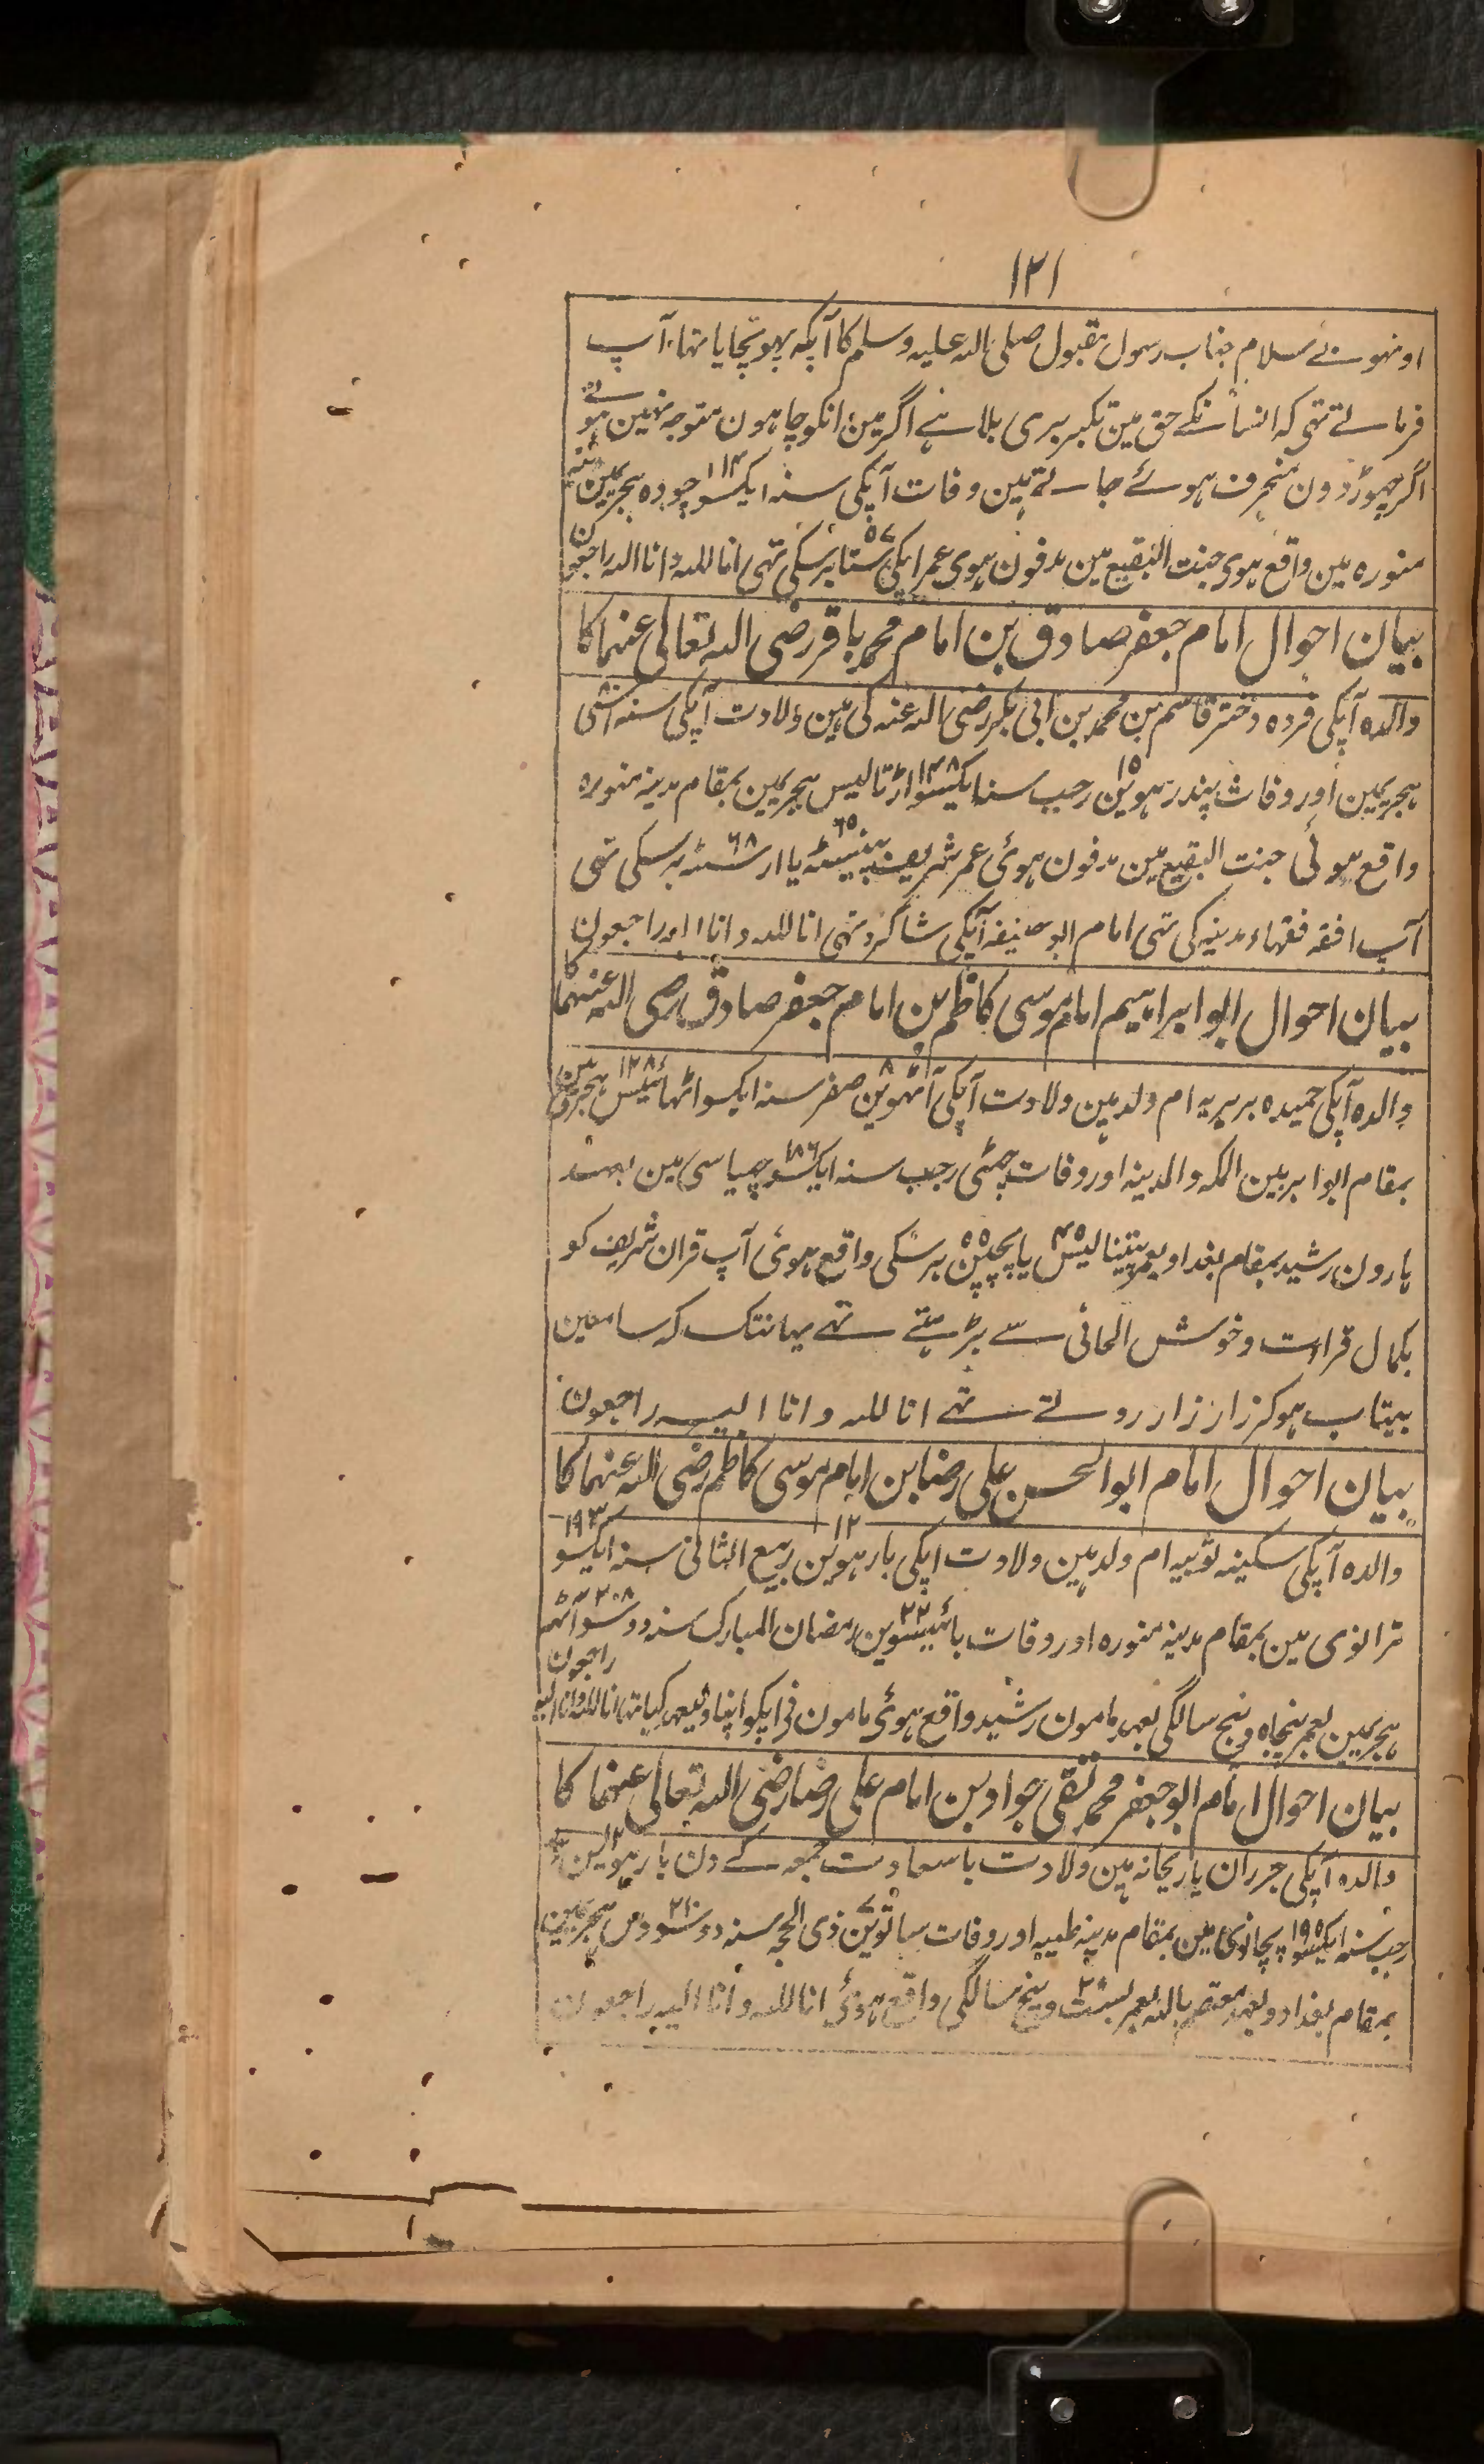 ۱۲۱
اونہونے سلام جناب رسول مقبول صلی اللہ علیہ وسلم کا آپکو پہونچایا تہا، آپ
فرماتے تہی کہ انسانکے حق مین تکبر بری بلا ہے اگر مین انکو چاہون متوجہ نہین ہوتے
اگر چہوڑ دون منحرف ہوئے جاتے ہین وفات آپکی سنہ ایکسو چودہ ۱۱۴ ہجریمین مدینہ
منورہ مین واقع ہوی جنت البقیع مین مدفون ہوی عمر اپکی ستاون ۵۷ برسکی تہی انا للہ وانا الیہ راجعون
بیان احوال امام جعفر صادق بن امام محمد باقر رضی اللہ تعالی عنہما کا
والدہ آپکی فردہ دختر قاسم بن محمد بن ابی بکر رضی اللہ عنہ کی ہین ولادت آپکی سنہ اسّی ۸۰
ہجریمین اور وفات پندرہوین ۱۵ رجب سنہ ایکسو اڑتالیس ۱۴۸ ہجریمین بمقام مدینہ منورہ
واقع ہوئی جنت البقیع مین مدفون ہوی عمر شریف پینسٹہ ۶۵ یا ارسٹہ ۶۸ برسکی تہی
آپ افقہ فقہاء مدینہ کی تہی امام ابو حنیفہ آپکی شاگرد تہی انا للہ وانا الیہ راجعون
بیان احوال ابو ابراہیم امام موسی کاظم بن امام جعفر صادق رضی اللہ عنہما کا
والدہ آپکی حمیدہ بربریہ ام ولد ہین ولادت آپکی آٹہوین ۸ صفر سنہ ایکسو اٹہائیس ۱۲۸ ہجری مین
بمقام ابوا بربین المکہ والمدینہ اور وفات چہٹی رجب سنہ ایکسو چہیاسی ۱۸۶ مین بعہد
ہارون رشید بمقام بغداد بعمر پینتالیس ۴۵ یا پچپن ۵۵ برسکی واقع ہوئ آپ قران شریف کو
بکمال قراءت وخوش الحانی سے پڑہتے تہے یہانتک کہ سامعین
بیتاب ہوکر زار زار روتے تہے انا للہ وانا الیہ راجعون
بیان احوال امام ابوالحسن علی رضا بن امام موسی کاظم رضی اللہ عنہما کا
والدہ آپکی سکینہ نوبیہ ام ولد ہین ولادت اپکی بارہوین ۱۲ ربیع الثانی سنہ ایکسو ۱۹۳
ترانوی مین بمقام مدینہ منورہ اور وفات بائیسوین ۲۲ رمضان المبارک سنہ دوسو آٹہ ۲۰۸
ہجریمین بعمر پنجاہ وپنج سالگی بعہد مامون رشید واقع ہوئ مامون نی اپکو اپنا ولیعہد کیا تہا انا للہ وانا الیہ راجعون
بیان احوال امام ابو جعفر محمد تقی جواد بن امام علی رضا رضی اللہ تعالی عنہما کا
والدہ آپکی یا ریحانہ ہین ولادت باسعادت جمعہ کے دن بارہوین ۱۲
رجب سنہ ایکسو پچانوی ۱۹۵ مین بمقام مدینہ طیبہ اور وفات ساتوین ۷ ذی الحجہ سنہ دوسو دس ۲۱۰ ہجریمین
بمقام بغداد وبعہد معتصم باللہ بعمر بست وپنج سالگی واقع ہوئ انا للہ وانا الیہ راجعون